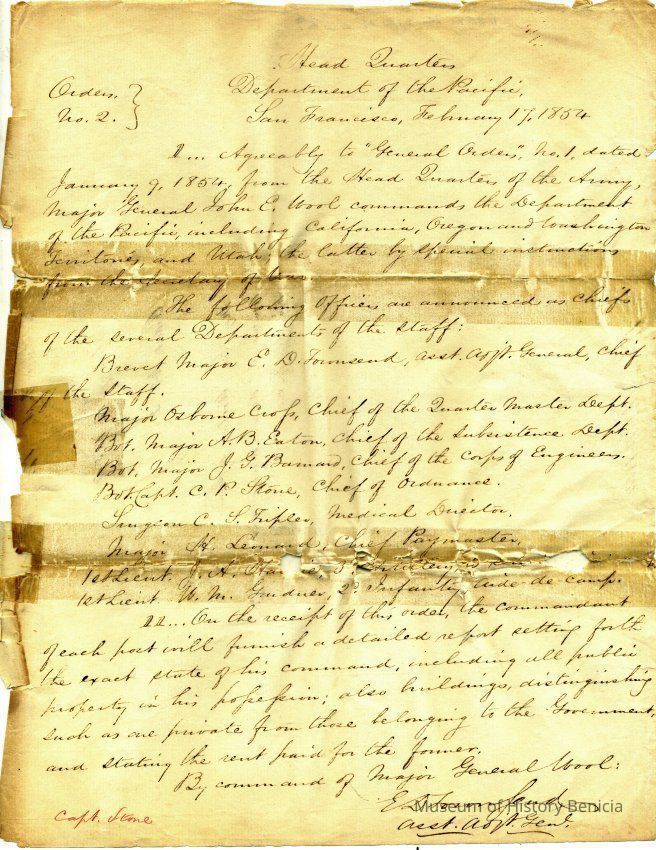 Head Quarters
Orders } Department of the Pacific,
No. 2. } San Francisco, February 17, 1854
I... Agreeably to "General Orders", No. 1, dated
January 9, 1854, from the Head Quarters of the Army,
Major General John E. Wool commands the Department
of the Pacific, including California, Oregon and Washington
Territories, and Utah, the latter by special instructions
from the Secretary of War.
The following officers are announced as chiefs
of the several Departments of the Staff:
Brevet Major E. D. Townsend, Asst. Adjt. General, Chief
of the Staff.
Major Osborne Cross, Chief of the Quarter Master Dept.
Bvt. Major A. B. Eaton, Chief of the Subsistence Dept.
Bvt. Major J. G. Barnard, Chief of the Corps of Engineers.
Bvt. Capt. C. P. Stone, Chief of Ordnance.
Surgeon C. S. Tripler, Medical Director.
Major H. Leonard, Chief Paymaster.
1st Lieut. J. A. Artillery,
1st Lieut. W. M. Gardner, 2d Infantry, Aide-de-camp.
II... On the receipt of this order, the commandant
of each post will furnish a detailed report setting forth
the exact state of his command, including all public
property in his possession; also buildings, distinguishing
such as are private from those belonging to the Government,
and stating the rent paid for the former.
By command of Major General Wool:
Asst. Adjt. Genl.
Capt. Stone
Museum of History Benicia